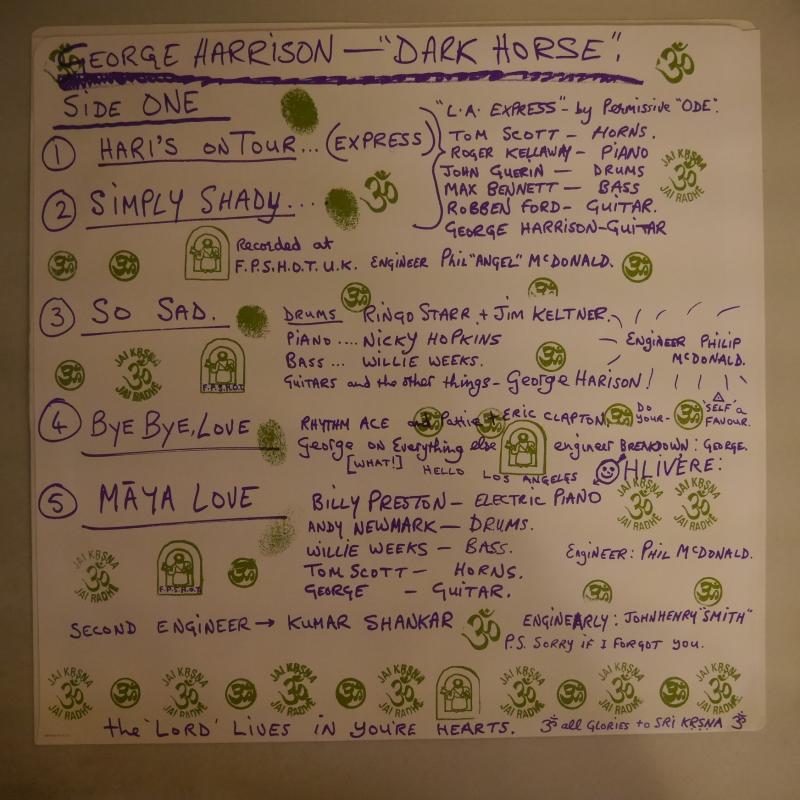 GEORGE HARRISON — "DARK HORSE".
SIDE ONE
① HARI'S ON TOUR... (EXPRESS)
② SIMPLY SHADY...
"L.A. EXPRESS" - by Permissive "ODE".
TOM SCOTT — HORNS.
ROGER KELLAWAY — PIANO
JOHN GUERIN — DRUMS
MAX BENNETT — BASS
ROBBEN FORD - GUITAR.
GEORGE HARRISON - GUITAR
JAI KRSNA
JAI RADHE
Recorded at
F.P.S.H.O.T. U.K. ENGINEER PHIL "ANGEL" McDONALD.
③ SO SAD.
DRUMS RINGO STARR + JIM KELTNER.
PIANO .... NICKY HOPKINS
BASS... WILLIE WEEKS.
GUITARS and the other things - GEORGE HARISON!
ENGINEER PHILIP
McDONALD.
JAI KRSNA
JAI RADHE
F.P.S.H.O.T.
④ BYE BYE, LOVE
RHYTHM ACE and Pattie + ERIC CLAPTON.
DO YOUR- 'SELF' a FAVOUR.
George on Everything else engineer BREAKDOWN: GEORGE.
[WHAT!] HELLO LOS ANGELES
OHLIVERE:
⑤ MĀYA LOVE
BILLY PRESTON — ELECTRIC PIANO
ANDY NEWMARK — DRUMS.
WILLIE WEEKS — BASS.
TOM SCOTT — HORNS.
GEORGE — GUITAR.
JAI KRSNA
JAI RADHE
JAI KRSNA
JAI RADHE
Engineer: PHIL McDONALD.
JAI KRSNA
JAI RADHE
F.P.S.H.O.T.
SECOND ENGINEER → KUMAR SHANKAR ॐ
ENGINEARLY: JOHNHENRY "SMITH"
P.S. SORRY IF I FORGOT YOU.
JAI KRSNA ॐ JAI RADHE
JAI KRSNA ॐ JAI RADHE
JAI KRSNA ॐ JAI RADHE
JAI KRSNA ॐ JAI RADHE
JAI KRSNA ॐ JAI RADHE
JAI KRSNA ॐ JAI RADHE
JAI KRSNA ॐ JAI RADHE
the 'LORD' LIVES IN YOU'RE HEARTS.
ॐ all GLORIES to SRI KRSNA ॐ